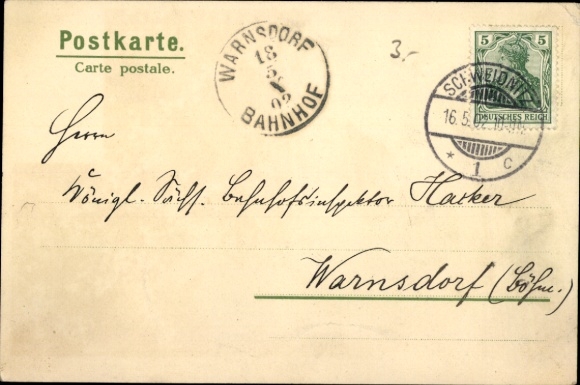 Postkarte.
Carte postale.
WARNSDORF
18
5
02
BAHNHOF
3.-
5
DEUTSCHES REICH
SCHWEIDNITZ
16.5.02.
* 1 c
Herrn
Königl. Sächs. Bahnhofsinspektor Hacker
Warnsdorf (Böhm.)